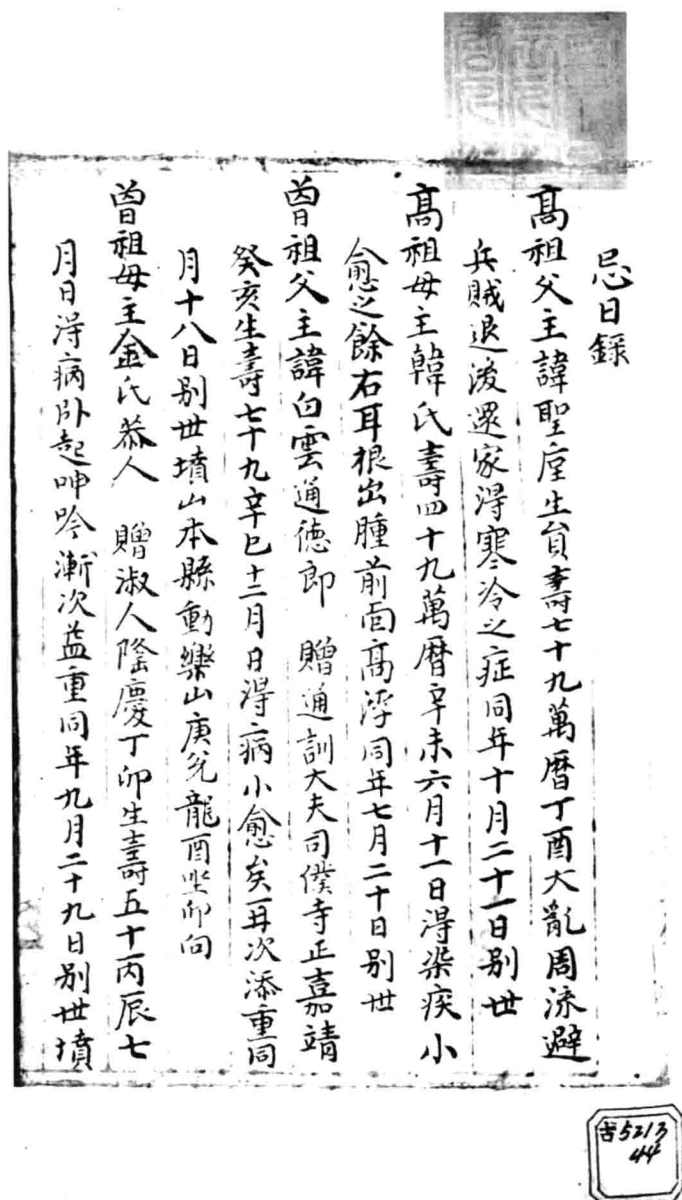 忌日録
高祖父主諱聖度生貟壽七十九萬曆丁酉大亂周流避
兵賊退後還家得寒冷之症同年十月二十一日別世
高祖母主韓氏壽四十九萬曆辛未六月十一日得染疾小
愈之餘右耳根出腫前面高浮同年七月二十日別世
曽祖父主諱白雲通德郎 贈通訓大夫司僕寺正嘉靖
癸亥生壽七十九辛巳十二月日得病小愈矣再次添重同
月十八日別世墳山本縣動樂山庚兌龍酉坐卯向
曽祖母主金氏恭人 贈淑人隆慶丁卯生壽五十丙辰七
月日得病卧起呻吟漸次益重同年九月二十九日別世墳
古5213
44